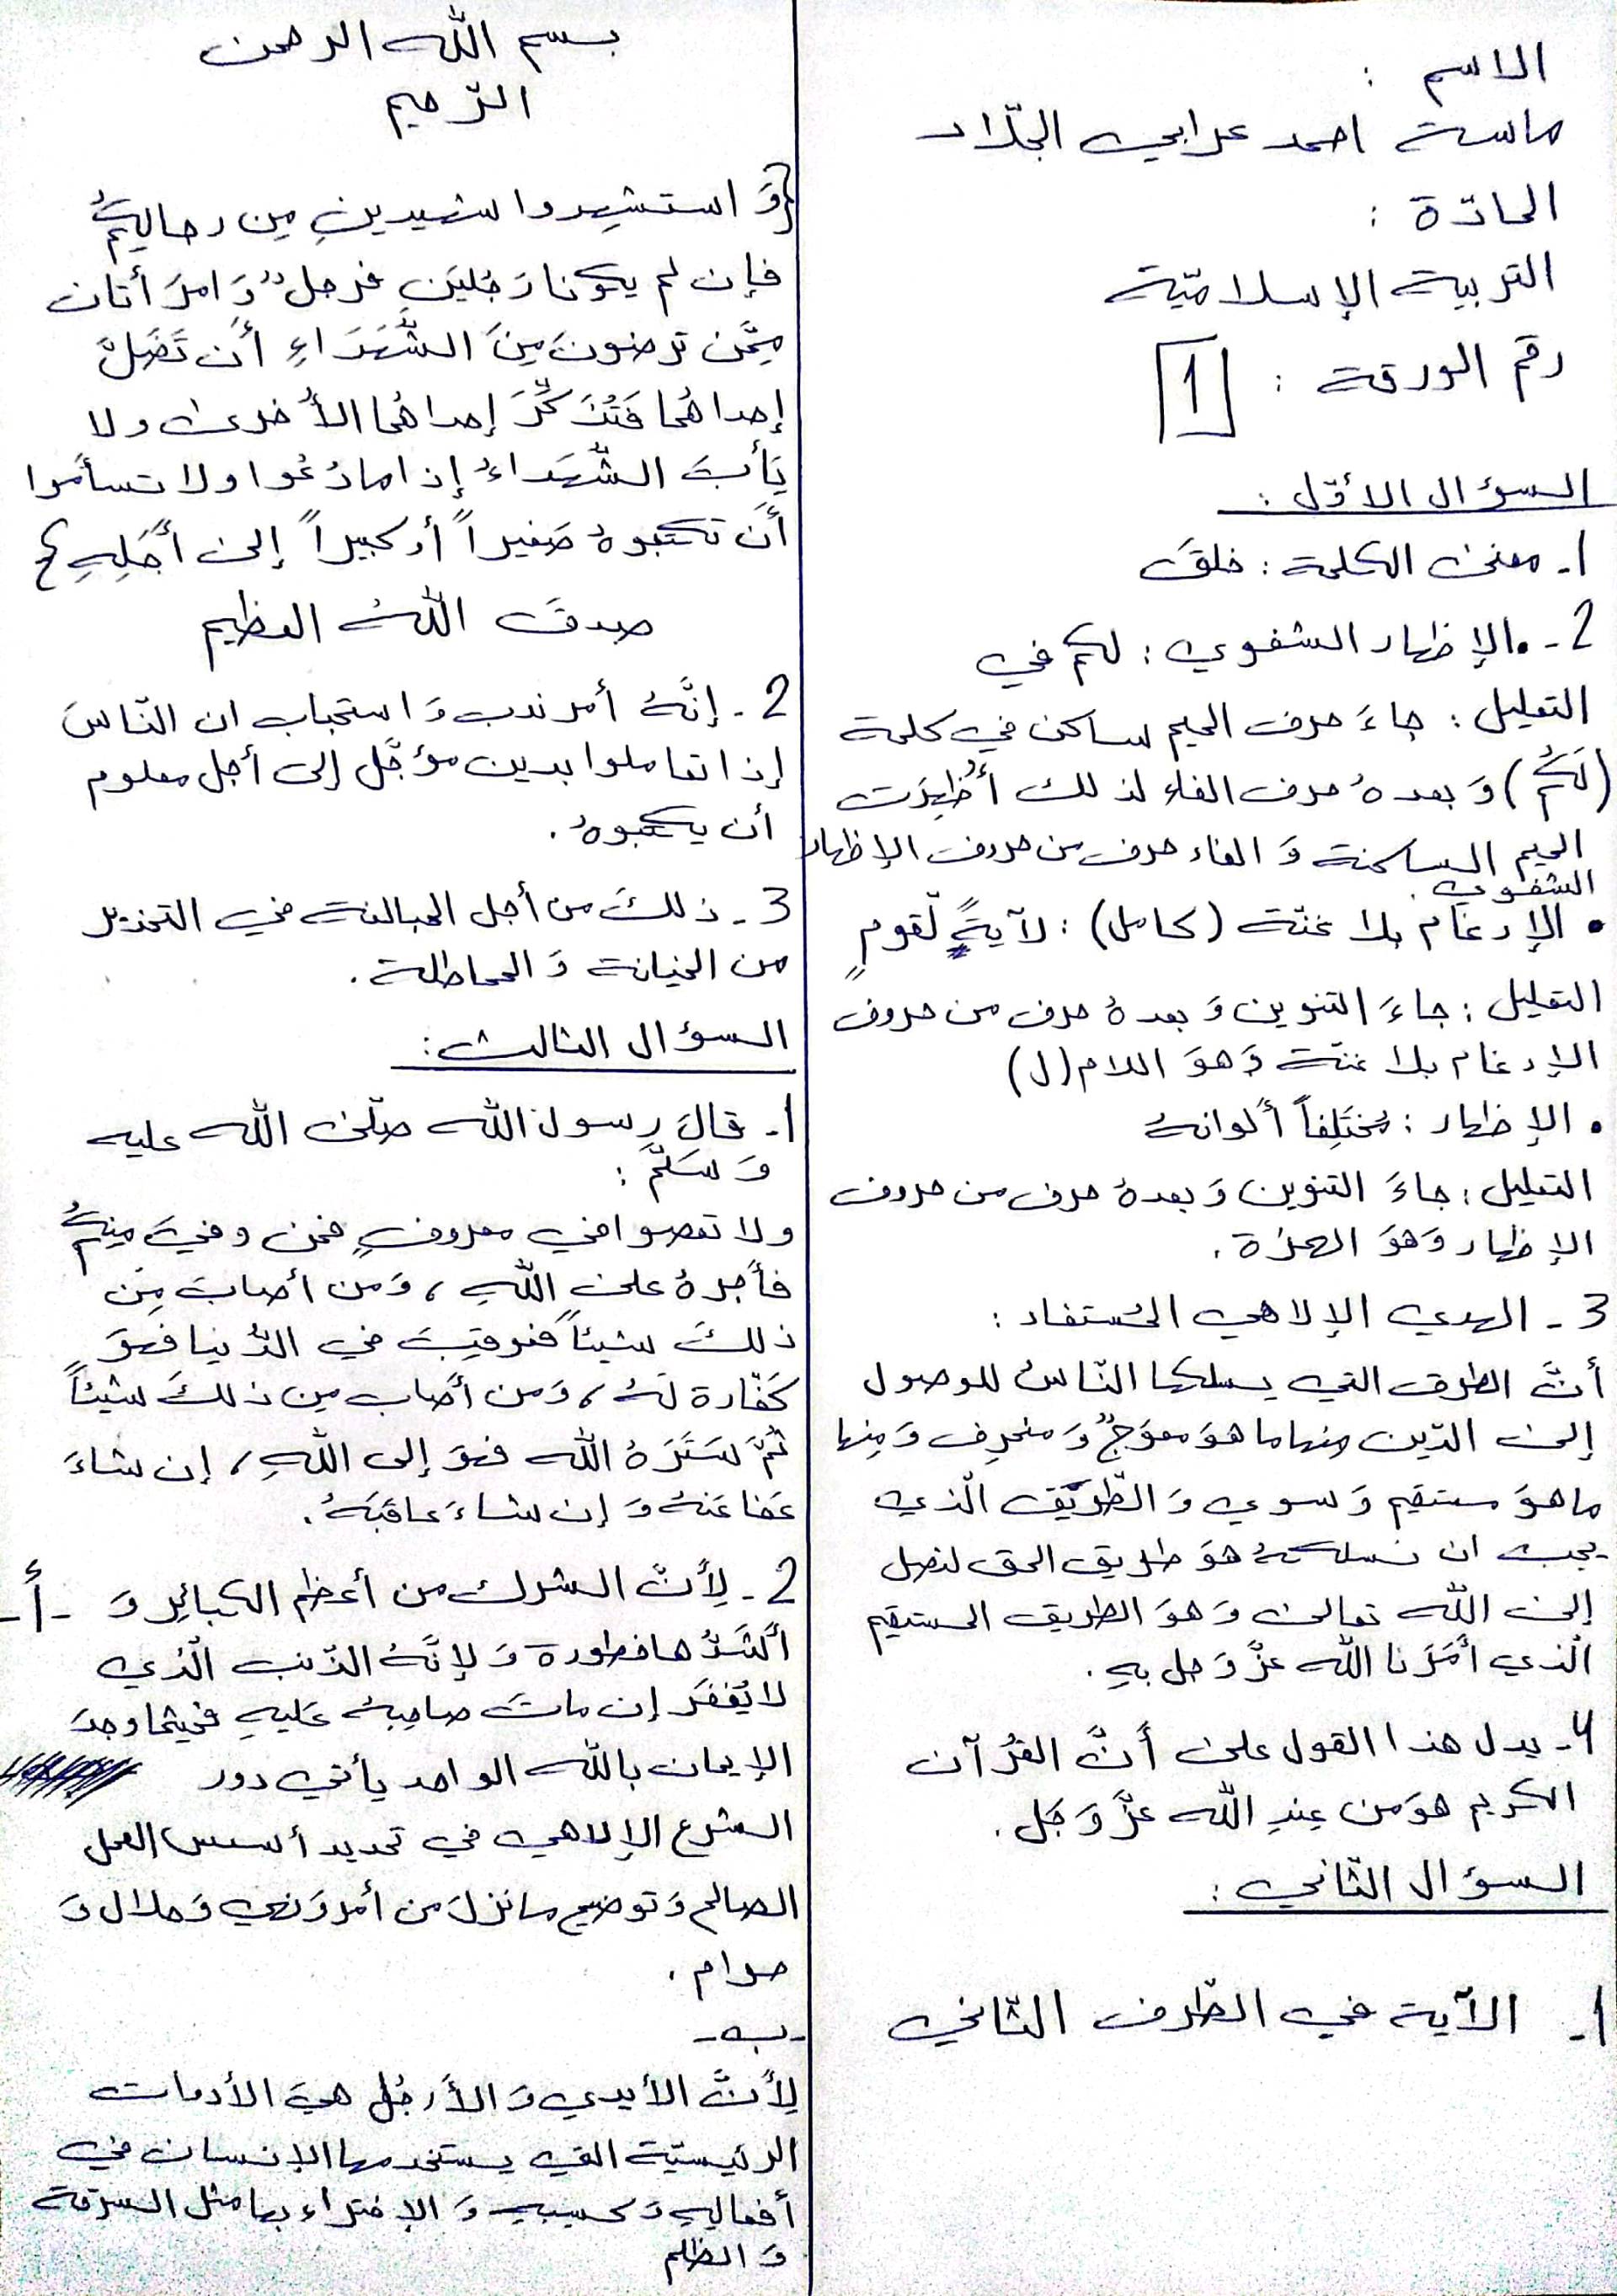 الاسم :
ماسة احمد عرابي الجلّاد
المادّة :
التربية الإسلاميّة
رقم الورقة : 1
السؤال الأوّل :
1- معنى الكلمة : خلقَ
2- • الإظهار الشفوي : لكم في
التعليل : جاءَ حرف الميم ساكن في كلمة
(لَكُم) وَ بعدهُ حرف الفاء لذلك أُظهِرَت
الميم الساكنة وَ الفاء حرف من حروف الإظهار
الشفوي.
• الإدغام بلا غنّة (كامل) : لآيةً لّقومٍ
التعليل : جاءَ التنوين وَ بعدهُ حرف من حروف
الإدغام بلا غنّة وَ هوَ اللام (ل)
• الإظهار : مُختَلِفاً ألوانهُ
التعليل : جاءَ التنوين وَ بعدهُ حرف من حروف
الإظهار وَ هوَ الهمزة .
3- الهدي الإلاهي المُستفاد :
أنَّ الطرق التي يسلكها النّاسُ للوصول
إلى الدّين منها ما هوَ معوَجٌ وَ منحرِف وَ مِنها
ما هوَ مستقيم وَ سوي وَ الطّريق الّذي
يجب ان نسلكهُ هوَ طريق الحق لنصل
إلى الله تعالى وَ هوَ الطريق المستقيم
الّذي أمَرَنا الله عزَّ وَ جل بهِ .
4- يدل هذا القول على أنَّ القُرآن
الكريم هوَ من عِندِ الله عزَّ وَ جَل .
السؤال الثّاني :
1- الآية في الطّرف الثّاني
بسم الله الرحمن
الرّحيم
{وَ استشهِدوا شهيدينِ مِن رجالِكُم
فإن لم يكونا رَجُلَينِ فرجلٌ وَ امرَأتان
مِمَّن ترضونَ مِنَ الشُّهَدَاءِ أَن تَضَلَّ
إحداهُما فَتُذَكِّرَ إحداهُما الأُخرى ولا
يَأبَ الشُّهَداءُ إذا ما دُعُوا ولا تسأَموا
أَن تكتبوهُ صَغيراً أو كبيراً إلى أَجَلِهِ}
صدقَ اللهُ العظيم
2- إنَّهُ أمر ندب وَ استحباب ان النّاسَ
إذا تعاملوا بدين مؤجَّل إلى أجل معلوم
أن يكتبوهُ .
3- ذلكَ من أجل المبالغة في التحذير
من الخيانة وَ المماطلة .
السؤال الثالث :
1- قالَ رسول الله صلّى الله عليه
وَ سَلَّم :
ولا تعصوا في معروفٍ فمن وفى مِنكُم
فأجرهُ على اللهِ ، وَ من أصابَ مِن
ذلكَ شيئاً فعوقِبَ في الدُّنيا فهوَ
كَفّارة لَهُ ، وَ من أَصاب مِن ذلكَ شيئاً
ثُمَّ سَتَرَهُ الله فهوَ إلى اللهِ ، إن شاءَ
عَفا عَنهُ وَ إن شاءَ عاقَبَهُ .
2- أ- لِأَنَّ الشرك من أعظم الكبائِر وَ
أَشَدُّها خطورة وَ لإنَّهُ الذّنب الّذي
لا يُغفَر إن ماتَ صاحِبهُ عَليهِ فحيثما وجدَ
الإيمان بالله الواحد يأتي دور
الشرع الإلاهي في تحديد أسس العمل
الصالح وَ توضيح ما نزلَ من أمر وَ نهي وَ حلال وَ
حرام .
-ب-
لِأَنَّ الأيدي وَ الأَرجُل هيَ الأدوات
الرئيسيّة التي يستخدمها الإنسان في
أفعالِهِ وَ كسبِهِ وَ الإفتراء بها مثل السرقة
وَ الظلم